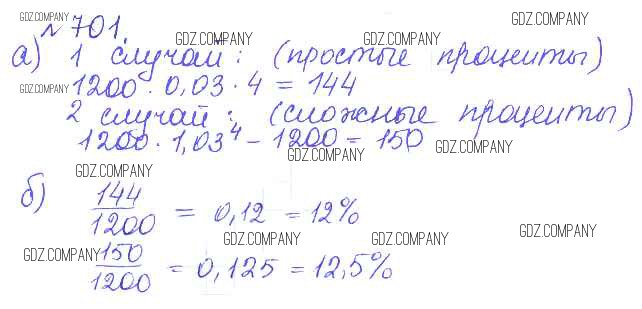 № 701.
GDZ.COMPANY GDZ.COMPANY GDZ.COMPANY
а) 1 случай: (простые проценты)
GDZ.COMPANY
1200 · 0,03 · 4 = 144
2 случай: (сложные проценты)
1200 · 1,03⁴ – 1200 = 150
GDZ.COMPANY GDZ.COMPANY
GDZ.COMPANY
б) 144/1200 = 0,12 = 12%
GDZ.COMPANY GDZ.COMPANY GDZ.COMPANY
GDZ.COMPANY
150/1200 = 0,125 = 12,5%